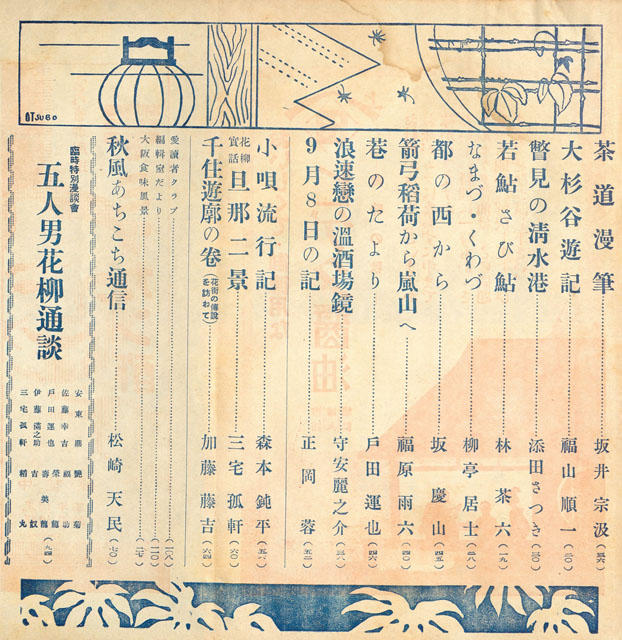 茶道漫筆 坂井宗汲(三六)
大杉谷遊記 福山順一(二〇)
瞥見の清水港 添田さつき(三〇)
若鮎さび鮎 林茶六(一九)
なまづ・くわづ 柳亭居士(二八)
都の西から 坂慶山(二四)
箭弓稲荷から嵐山へ 福原雨六(四四)
巷のたより 戸田運也(四六)
浪速戀の溫酒場鏡 守安麗之介(三八)
9月8日の記 正岡蓉(五二)
小唄流行記 森本鈍平(五六)
花柳實話 旦那二景 三宅孤軒(六〇)
千住遊廓の卷(花街の傳說を訪わて) 加藤藤吉(六四)
愛讀者クラブ(二八)
編輯室だより(二〇)
大阪食味風景
秋風あちこち通信 松崎天民(七〇)
臨時特別漫談會
五人男花柳通談
安東
佐藤幸吉 福助
戸田運也 榮龍
伊藤 壽美龍
吉奴
三宅孤軒 稻丸
(九四)
OTSUBO